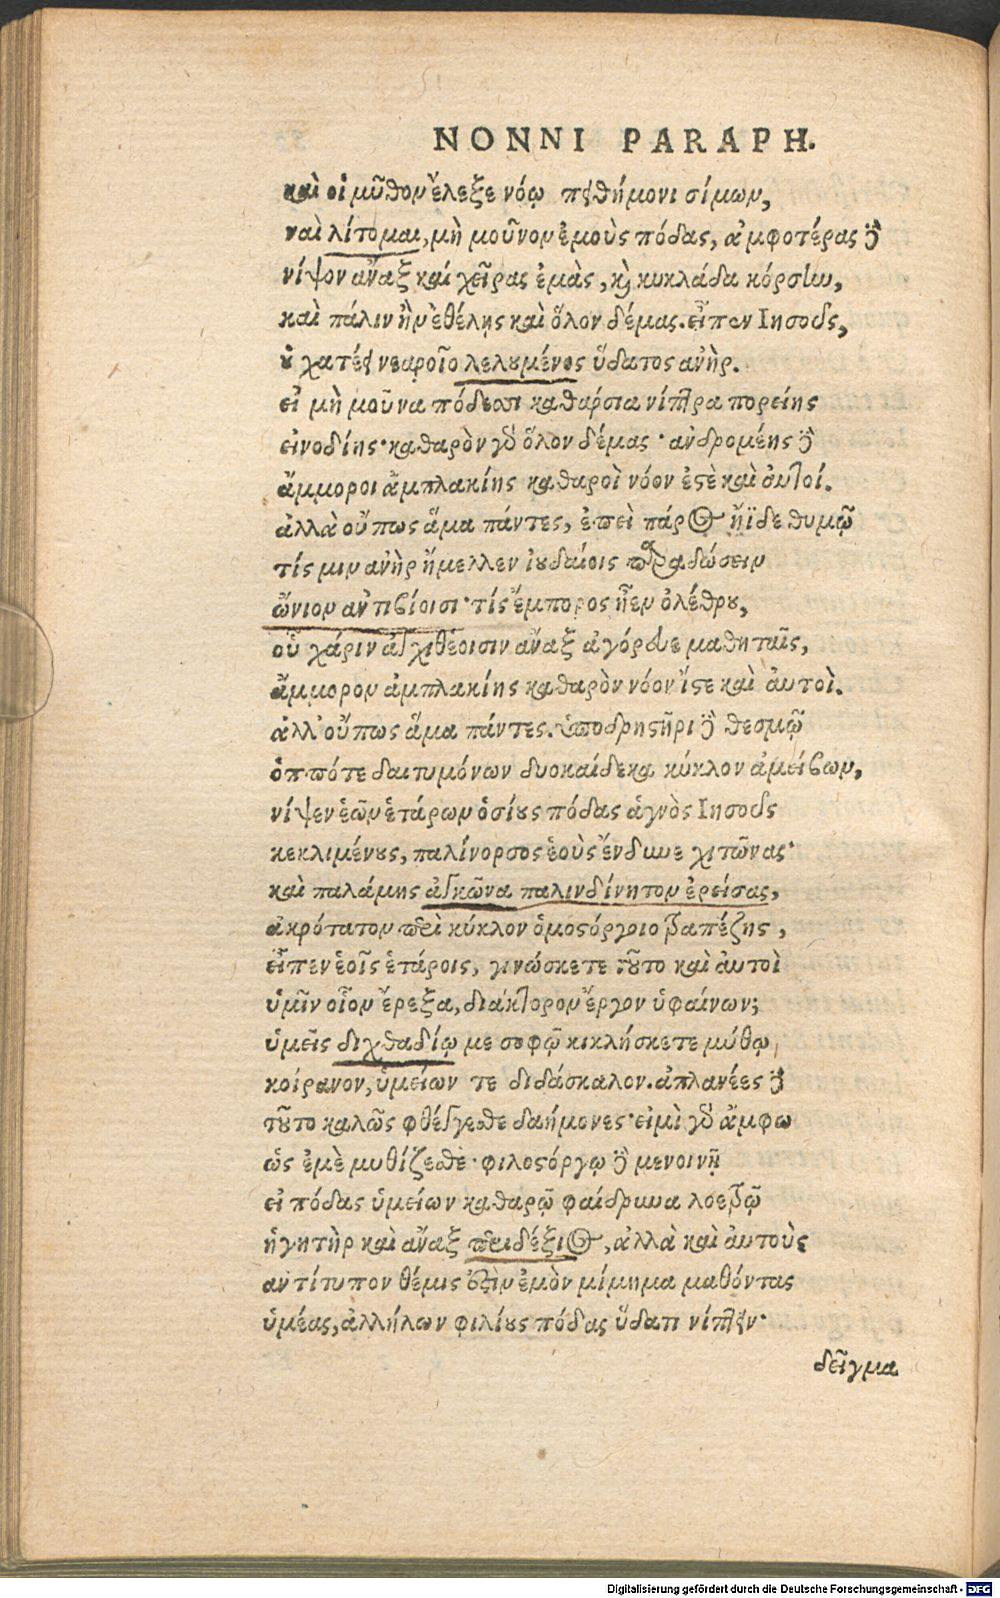 NONNI PARAPH.
καὶ οἱ μῦθον ἔλεξε νόῳ πειθήμονι σίμων,
ναὶ λίτομαι, μὴ μοῦνον ἐμοὺς πόδας, ἀμφοτέρας δὲ
νίψον ἄναξ καὶ χεῖρας ἐμὰς, καὶ κυκλάδα κόρσην,
καὶ πάλιν ἢν ἐθέλης καὶ ὅλον δέμας. εἶπεν Ιησοῦς,
οὐ χατέει νεαροῖο λελουμένος ὕδατος ἀνὴρ.
εἰ μὴ μοῦνα πόδεσσι καθάρσια νίπτρα πορείης
εἰνοδίης· καθαρὸν γὰρ ὅλον δέμας· ἀνδρομέης δὲ
ἄμμοροι ἀμπλακίης καθαροὶ νόον ἐστὲ καὶ αὐτοί.
ἀλλὰ οὔπως ἅμα πάντες, ἐπεὶ πάρος ἤϊδε θυμῷ
τίς μιν ἀνὴρ ἤμελλεν ἰουδαίοις παραδώσειν
ὤνιον ἀντιβίοισι· τίς ἔμπορος ἦεν ὀλέθρου,
οὗ χάριν ἀγχιθέοισιν ἄναξ ἀγόρευε μαθηταῖς,
ἄμμορον ἀμπλακίης καθαρὸν νόον ἴστε καὶ ἀυτοὶ.
ἀλλ' οὔπως ἅμα πάντες. ὑποδρηστῆρι δὲ θεσμῷ
ὁππότε δαιτυμόνων δυοκαίδεκα κύκλον ἀμείβων,
νίψεν ἑῶν ἑτάρων ὁσίους πόδας ἁγνὸς Ιησοῦς
κεκλιμένους, παλίνορσος ἑοὺς ἔνδυνε χιτῶνας·
καὶ παλάμης ἀγκῶνα παλινδίνητον ἐρείσας,
ἀκρότατον περὶ κύκλον ὁμοστόργοιο τραπέζης,
εἶπεν ἑοῖς ἑτάροις, γινώσκετε τοῦτο καὶ ἀυτοὶ
ὑμῖν οἷον ἔρεξα, διάκτορον ἔργον ὑφαίνων;
ὑμεῖς διχθαδίῳ με σοφῷ κικλήσκετε μύθῳ
κοίρανον, ὑμείων τε διδάσκαλον. ἀπλανέες δὲ
τοῦτο καλῶς φθέγγεσθε δαήμονες· εἰμὶ γὰρ ἄμφω
ὡς ἐμὲ μυθίζεσθε· φιλοστόργῳ δὲ μενοινῇ
εἰ πόδας ὑμείων καθαρῷ φαίδρυνα λοετρῷ
ἡγητὴρ καὶ ἄναξ περιδέξιος, ἀλλὰ καὶ ἀυτοὺς
ἀντίτυπον θέμις ἐστὶν ἐμὸν μίμημα μαθόντας
ὑμέας, ἀλλήλων φιλίους πόδας ὕδατι νίπτειν·
δεῖγμα
Digitalisierung gefördert durch die Deutsche Forschungsgemeinschaft - DFG